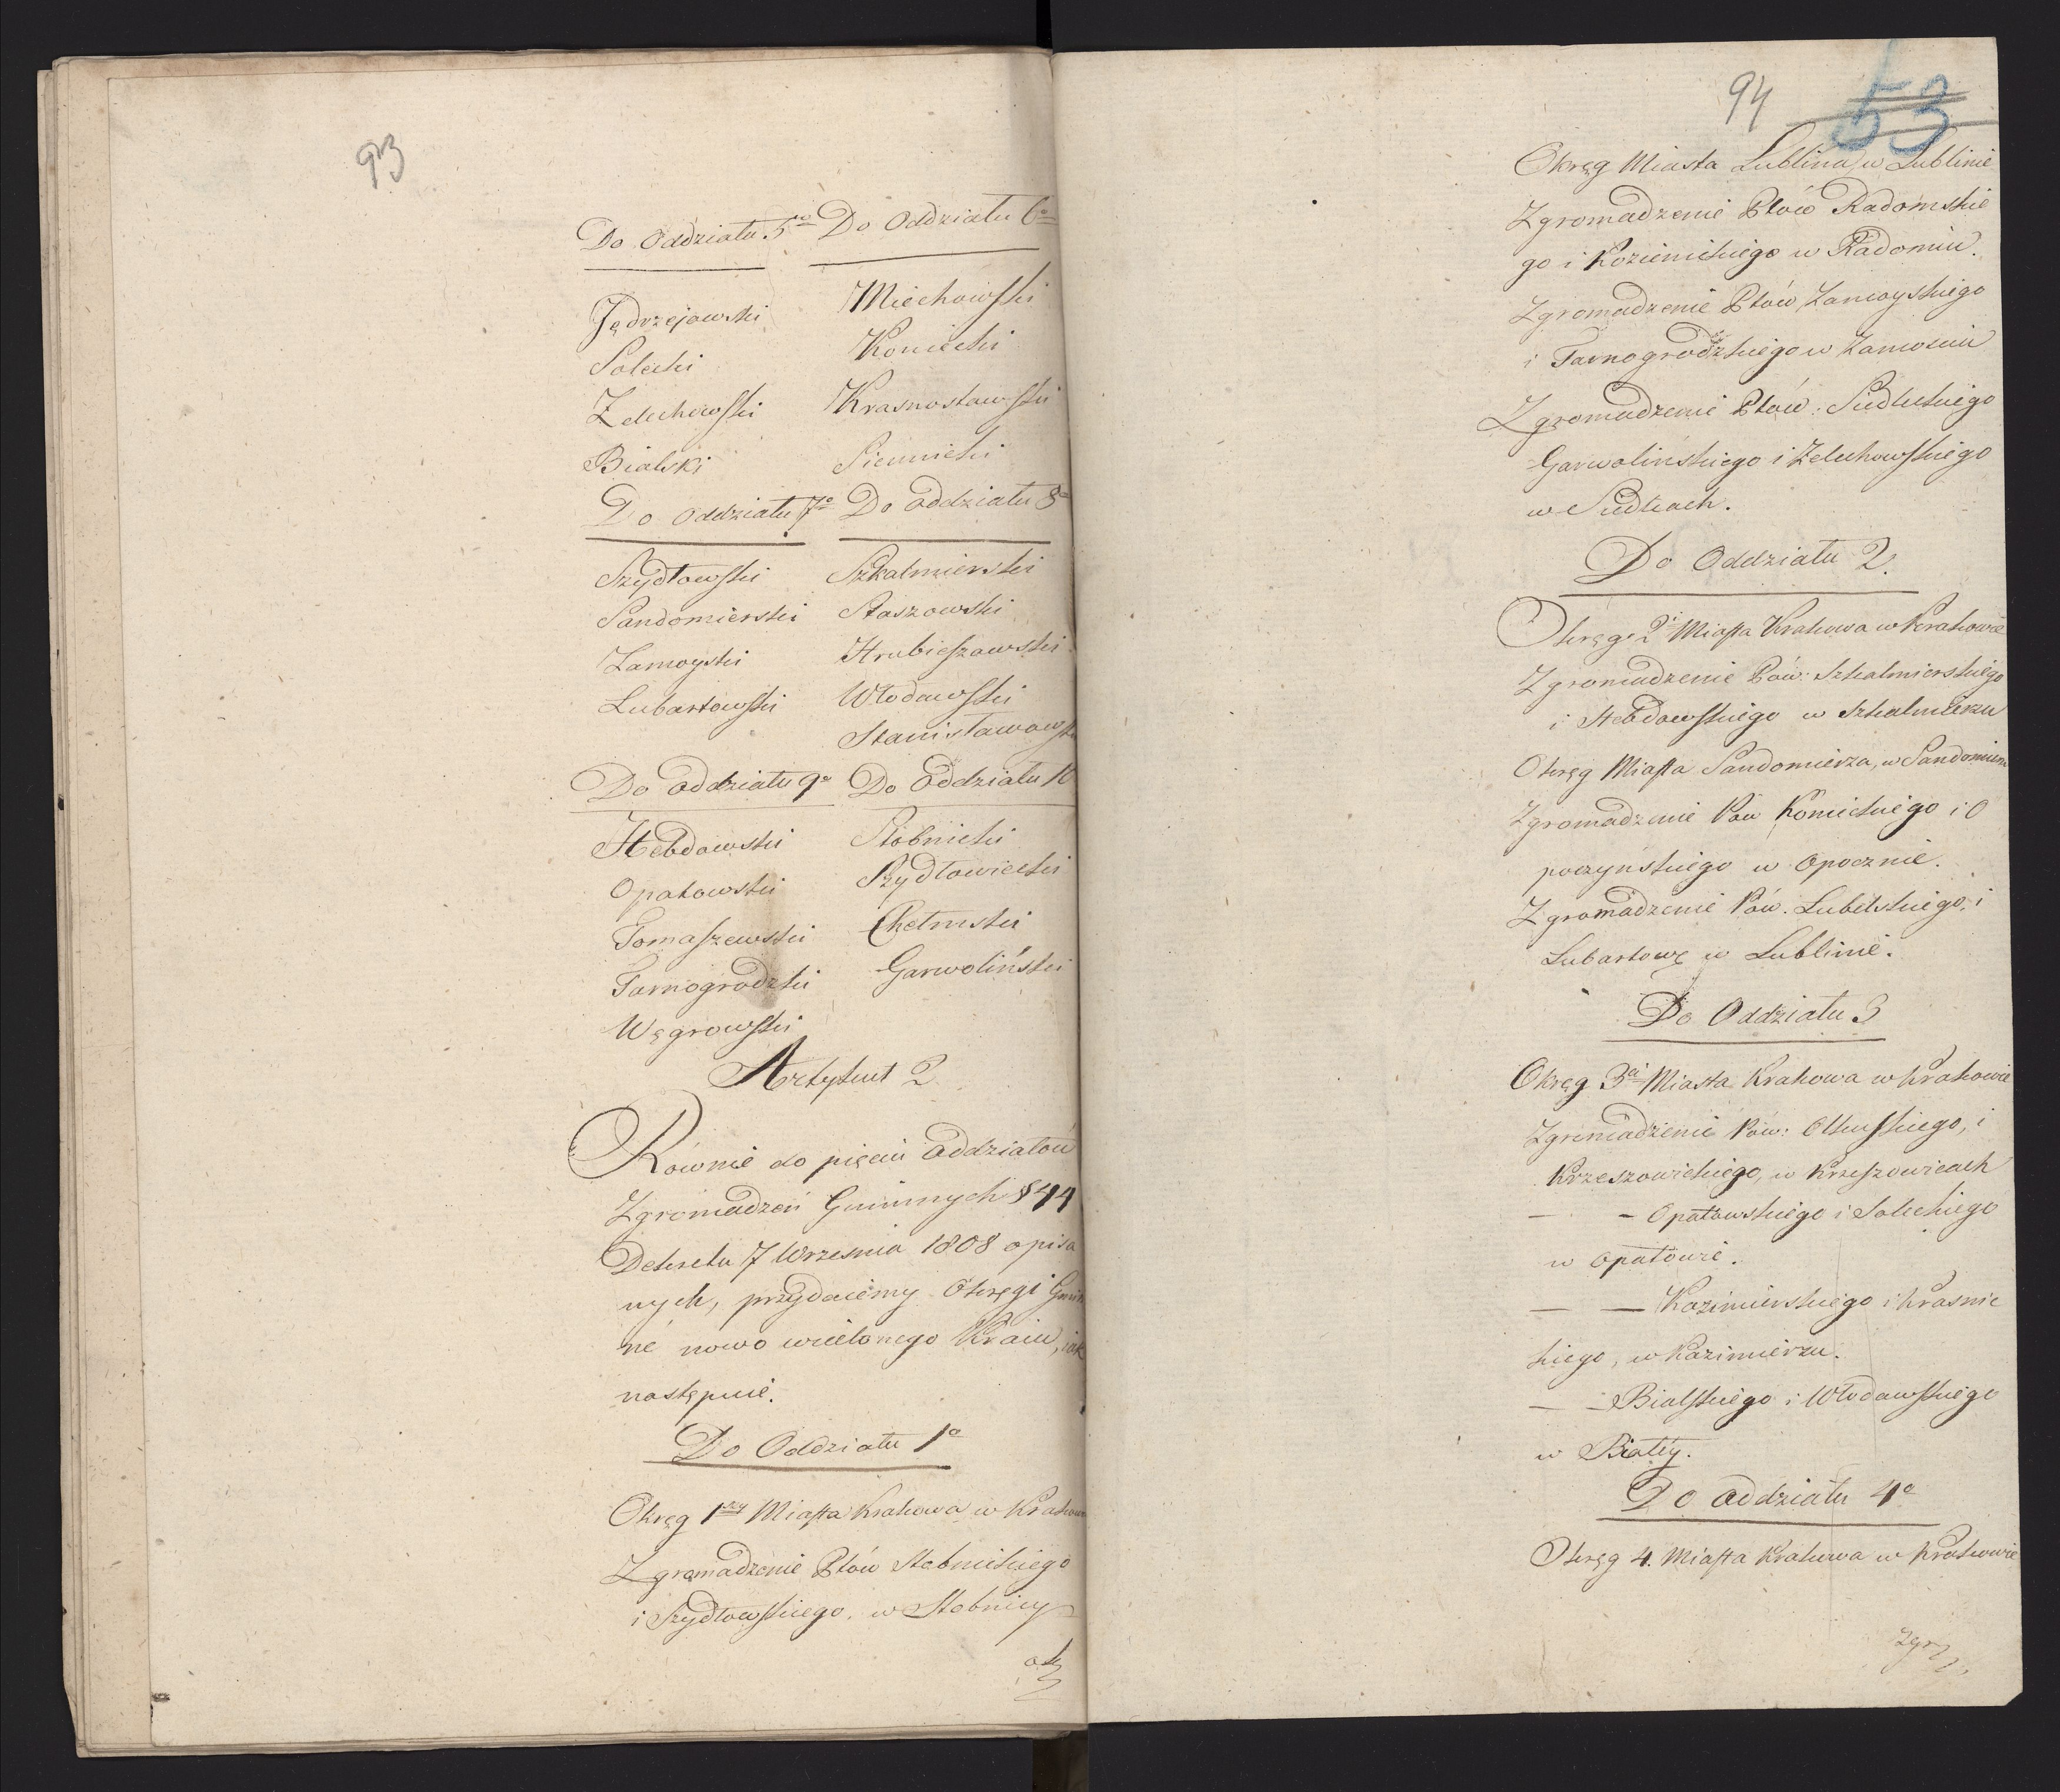 93
Do Oddziału 5go Do Oddziału 6o
Jędrzejowski Miechowski
Solecki Koniecki
Zelechowski Krasnostawski
Bialski Siennicki
Do Oddziału 7o Do Oddziału 8o
Szydłowski Szkalmierski
Sandomierski Staszowski
Zamoyski Hrubieszowski
Lubartowski Włodawski
Stanisławowski
Do Oddziału 9o Do Oddziału 10
Hebdowski Stobnicki
Opatowski Szydłowiecki
Tomaszewski Chełmski
Tarnogrodzki Garwoliński
Węgrowski
Artykuł 2
Równie do pięciu Oddziałów
Zgromadzeń Gminnych § 44
Dekretu 7 Wrzesnia 1808 opisa
nych, przydaiemy Okręgi Gmin
né nowo wcielonego Kraiu, iak
następuie.
Do Oddziału 1o
Okręg 1szy Miasta Krakowa w Krakowie
Zgromadzenie Ptów Stobnickiego
i Szydłowskiego, w Stobnicy
ok
94
53
Okręg Miasta Lublina, w Lublinie
Zgromadzenie Ptów Radomskie
go i Kozienickiego w Radomiu.
Zgromadzenie Ptów Zamoyskiego
i Tarnogrodzkiego w Zamosciu
Zgromadzenie Ptów: Siedleckiego
Garwolińskiego i Zelechowskiego
w Siedlcach.
Do Oddziału 2.
Okręg 2i Miasta Krakowa w Krakowie
Zgromadzenie Pów: Szkalmierskiego
i Hebdowskiego w Szkalmierzu
Okręg Miasta Sandomierza, w Sandomierzu
Zgromadzenie Pów Konieckiego i O
poczyńskiego w Opocznie.
Zgromadzenie Pów. Lubelskiego, i
Lubartowę w Lublinie.
Do Oddziału 3
Okręg 3ci Miasta Krakowa w Krakowie
Zgromadzenie Pów: Olkuskiego, i
Krzeszowickiego, w Krzeszowicach
— – Opatowskiego i Soleckiego
w Opatowie.
— — Kazimierskiego i Krasnic
kiego, w Kazimierzu.
— – Bialskiego i Włodawskiego
w Białéy.
Do Oddziału 4o
Okręg 4. Miasta Krakowa w Krakowie
Zgr